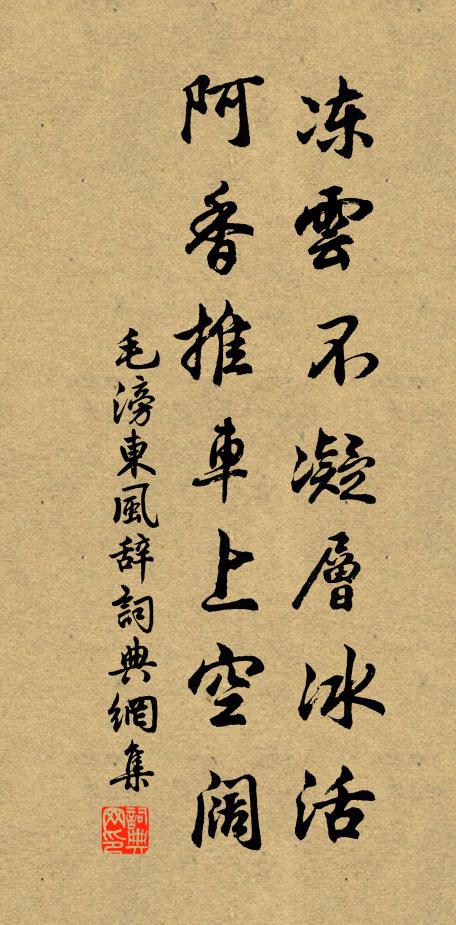 冻雲不凝層冰活
阿香推車上空阔
毛滂東風辞詞典網集
詞典网印